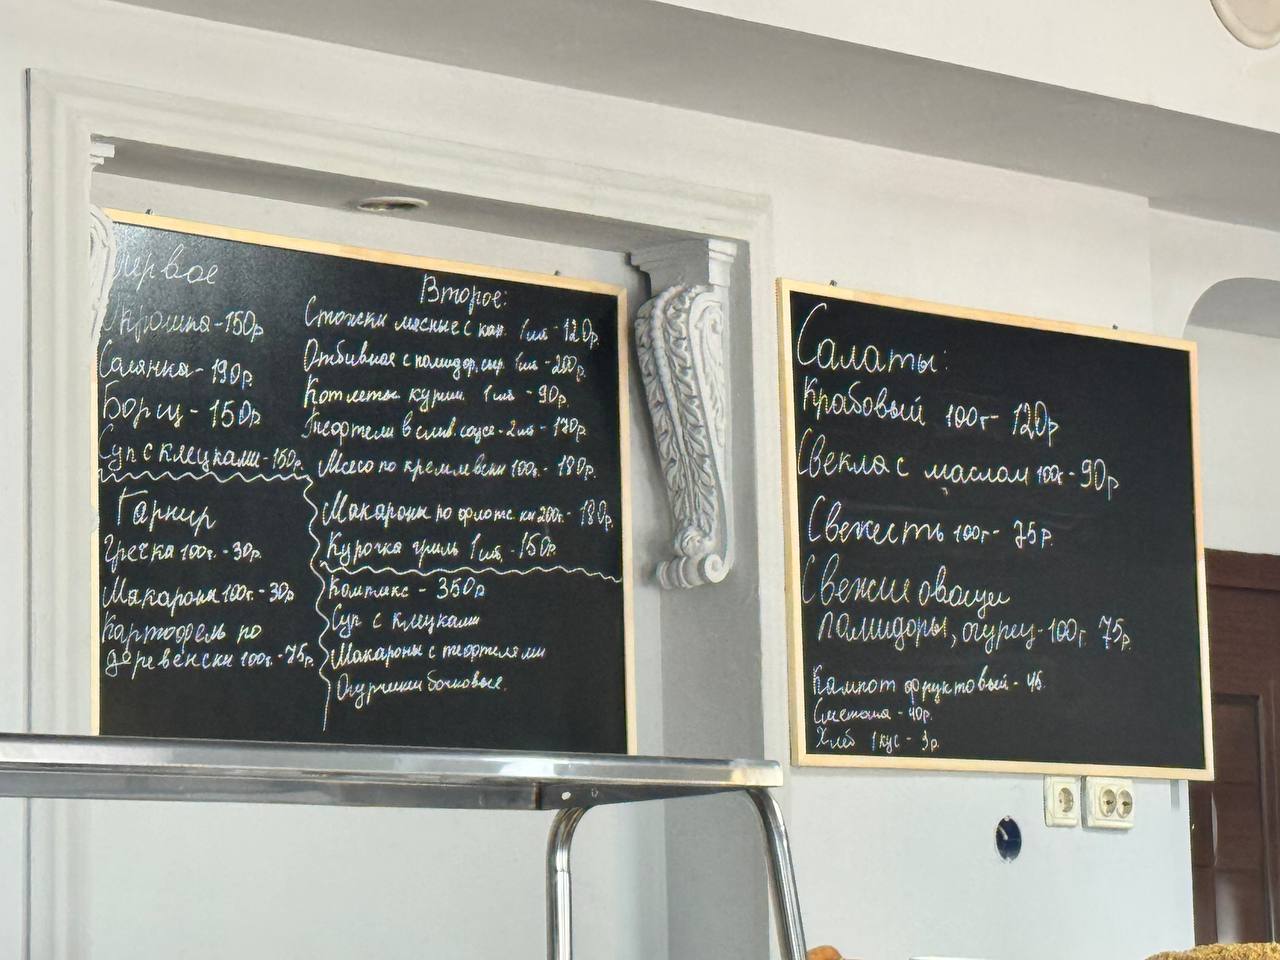 Первое
Окрошка - 150р
Солянка - 190р.
Борщ - 150р
Суп с клецками - 150р.
Гарнир
Гречка 100г. - 30р.
Макароны 100г. - 30р
Картофель по
деревенски 100г. - 75р.
Второе:
Стожки мясные с кап. 1шт - 120р.
Отбивная с помидор, сыр. 1шт - 200р.
Котлеты курин. 1шт - 90р.
Тефтели в слив. соусе - 2шт - 130р.
Мясо по кремлевски 100г. - 180р.
Макароны по флотски 200г. - 180р.
Курочка гриль 1шт. - 150р.
Комплекс - 350р
Суп с клецками
Макароны с тефтелями
Огурчики бочковые.
Салаты:
Крабовый 100г - 120р
Свекла с маслом 100г - 90р
Свежесть 100г - 75р.
Свежие овощи
помидоры, огурец - 100г. 75р.
Компот фруктовый - 45.
Сметана - 40р.
Хлеб 1кус - 3р.